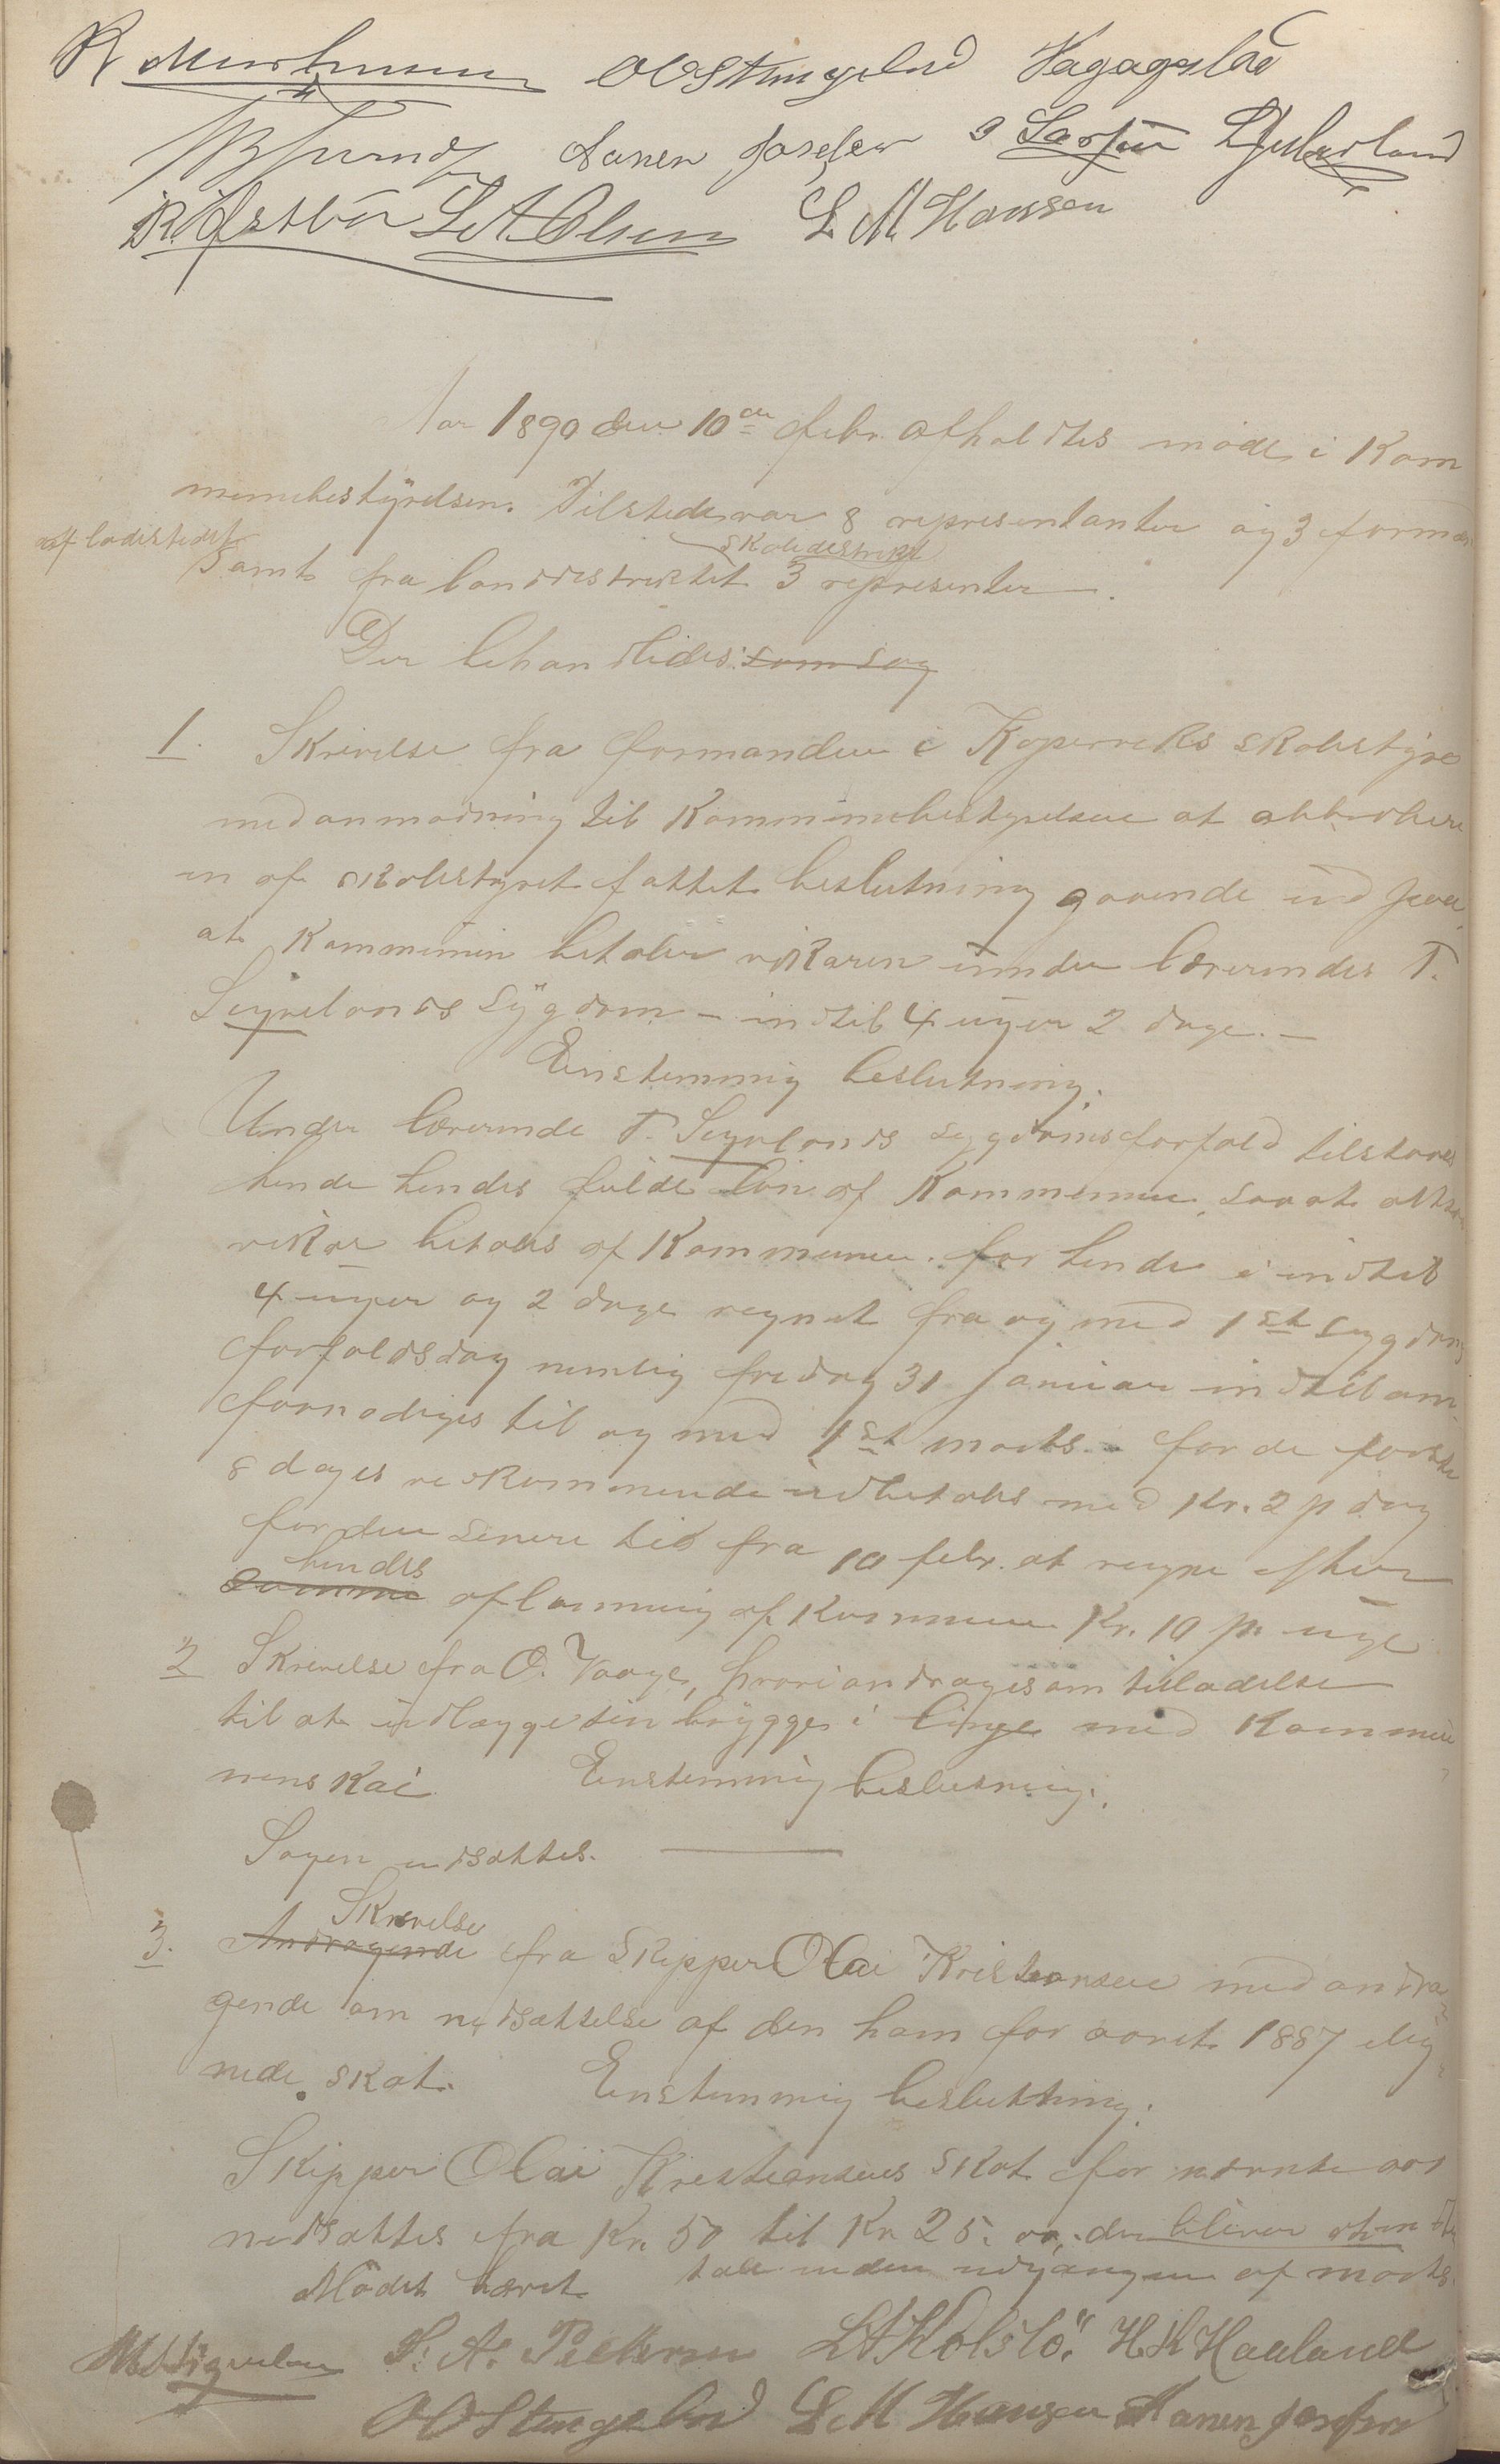 O O Stangeland Haga
Aanen Josefsen
L. A. Olsen L M Hansen
Aar 1890 den 10de febr. afholdtes møde i Kom
munebestyrelsen. Tilstede var 8 representanter og 3 formænd
af ladestedet
skoledistrikt
samt fra landdistriktet 3 representer.
Der behandledes: som sag
1. Skrivelse fra formanden i Koperveks skolestyre
med anmodning til Kommunebestyrelsen at approbere
en af skolestyret fattet beslutning gaaende ud paa
at Kommunen betaler vikaren under lærerindes T.
Sygdom – indtil 4 uger 2 dage. –
Enstemmig beslutning:
Under lærerinde T. sygdomsforfald tilstaaes
hende hendes fulde løn af Kommunen, saa at
vikar betales af Kommunen for hende i indtil
4 uger og 2 dage regnet fra og med 1st sygdoms
forfaldsdag nemlig fredag 31 januar indtil om
fornødiges til og med 1st marts – for de første
8 dages vedkommende udbetales med Kr. 2 p dag
for den senere tid fra 10 febr. at regne efter
hendes
samme aflønning af Kommunen Kr. 10 pr uge
2 Skrivelse fra O. Vaage, hvori andrages om tilladelse
til at udlægge sin brygge i linje med Kommu
nens Kai Enstemmig beslutning:
Sagen udsættes.
Skrivelse
3. Andragende fra Skipper Olai Kristiansen med andra
gende om nedsættelse af den ham for aaret 1887 ilig
nede skat. Enstemmig beslutning:
Skipper Olai Kristiansens skat for nævnte aar
nedsættes fra Kr. 50 til Kr 25. der bliver
Mødet hævet. inden udgangen af marts.
S. A. Pedersen L A Kolstø. H K Hauland
O O Stangeland L M Hansen Aanen Josefsen